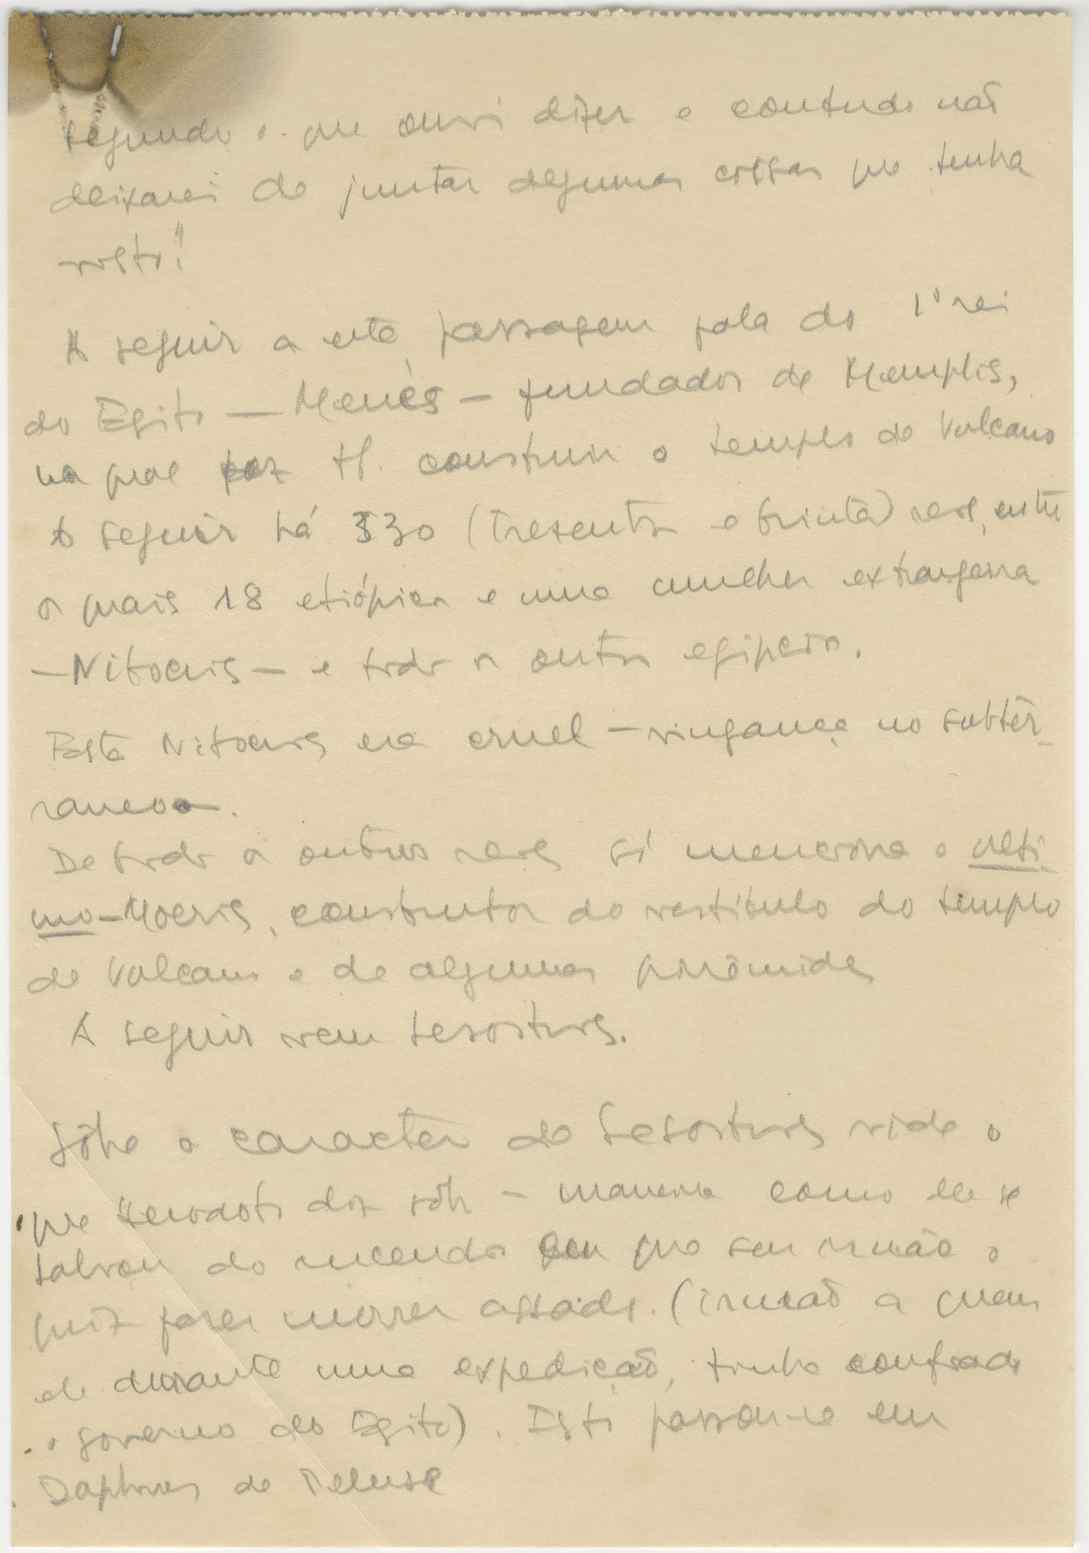 segundo o que ouvi dizer e contudo não
deixarei de juntar algumas coisas que tenha
visto!"
A seguir a esta passagem fala do 1º rei
do Egito — Menés — fundador de Memphis,
na qual H. construiu o templo de Vulcano
A seguir há 330 (trezentos e trinta) reis, entre
os quais 18 etiópios e uma mulher extrangeira
—Nitocris— e todos os outros egipcios.
Esta Nitocris era cruel — vingança no subter-
raneo.
De todos os outros reis só menciona o ulti-
mo—Moeris, construtor do vestibulo do templo
de Vulcano e de algumas pirâmides
A seguir vem Sesostris.
Sôbre o caracter de Sesostris vide o
que Herodoto diz sôbre — maneira como ele se
salvou do incendio em que seu irmão o
quiz fazer morrer assado. (irmão a quem
ele durante uma expedição, tinha confiado
o governo do Egito). Isto passou-se em
Daphnes de Peluse